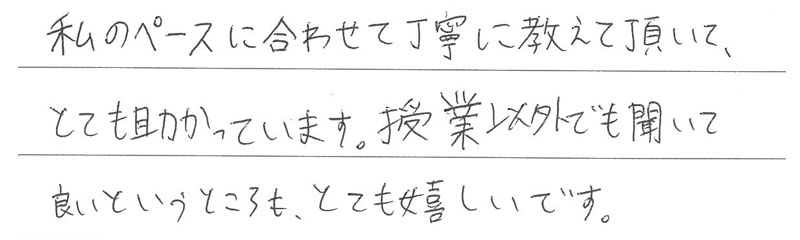 私のペースに合わせて丁寧に教えて頂いて、
とても助かっています。授業以外でも聞いて
良いというところも、とても嬉しいです。